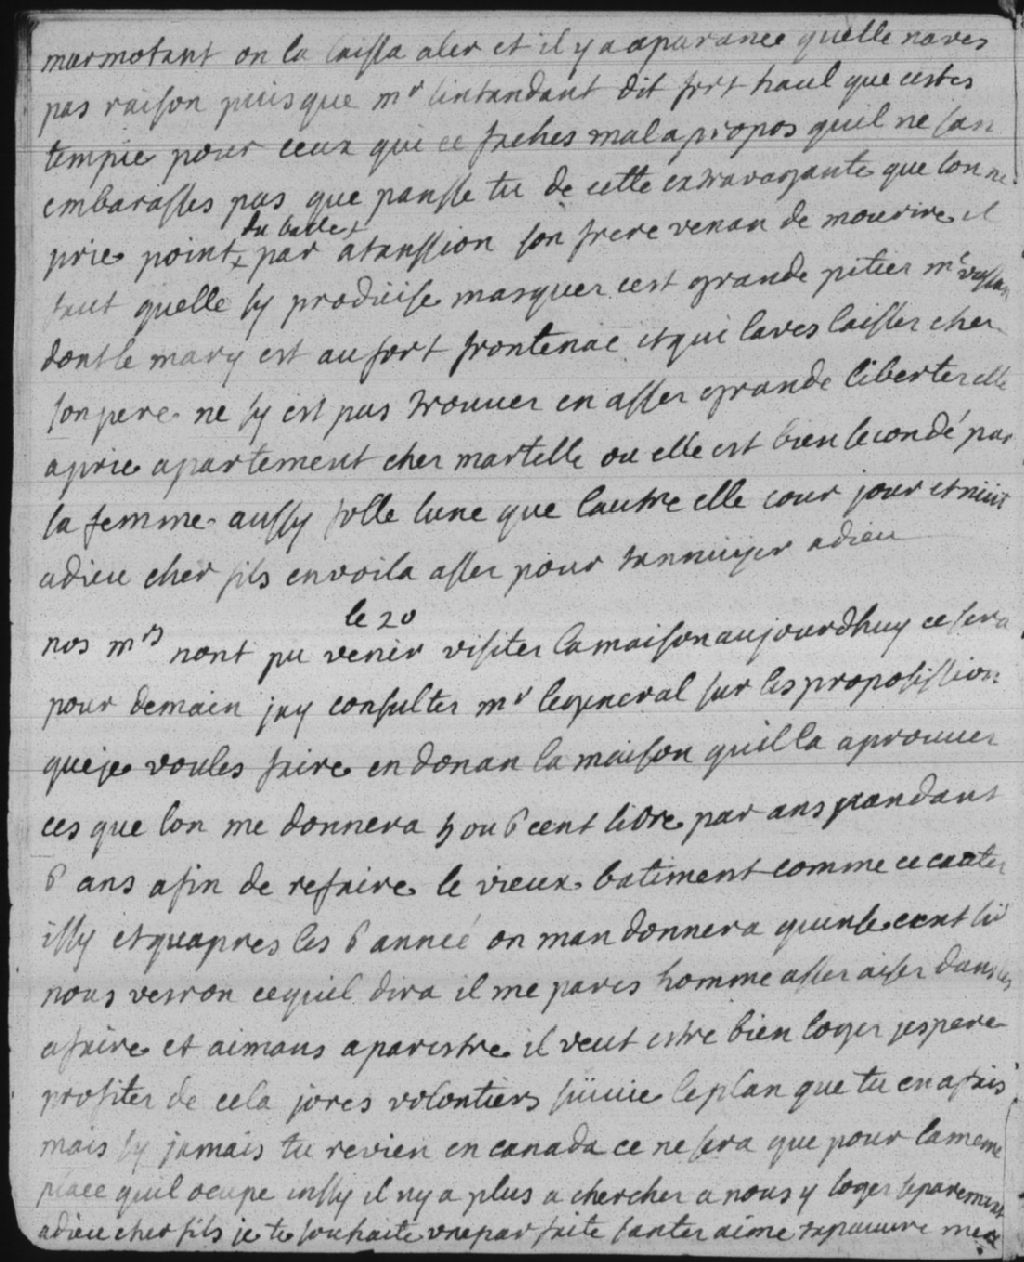 marmotant on la laissa aler et il y a aparance quelle naves
pas raison puis que mr lintandant dit fort haul que cestes
tempie pour ceux qui ce faches mal apropos quil ne san
embarasses pas que pansse tu de cette extravagante que lon ne
du balle
prie point x par atanssion son frere venan de mourire il
faut quelle sy produise masquer cest grande pitier me
dont le mary est au fort frontenac et qui laves laisser cher
son pere ne sy est pas trouver en asser grande liberter elle
a prie apartement cher martelle ou elle est bien secondé par
sa femme aussy folle lune que lautre elle cour jour et nuit
adieu cher fils en voila asser pour tannuyer adieu
le 20
nos mrs nont pu venir visiter la maison aujourdhuy ce sera
pour demain jay consulter mr le general sur les proposission
que je voules faire en donan la maison quil la aprouver
ces que lon me donnera 5 ou 6 cent livre par ans pandant
6 ans afin de refaire le vieux batiment comme ce
issy et quapres les 6 anneé on man donnera quinse cent li
nous verron ce quil dira il me pares homme asser aiser dans les
afaire et aimans a parestre il veut estre bien loger jespere
profiter de cela jores volontiers suivie le plan que tu en a fais
mais sy jamais tu revien en canada ce ne sera que pour la meme
place quil ocupe inssy il ny a plus a chercher a nous y loger separemant
adieu cher fils je te souhaite une parfaite santer aime ta pauvre mer